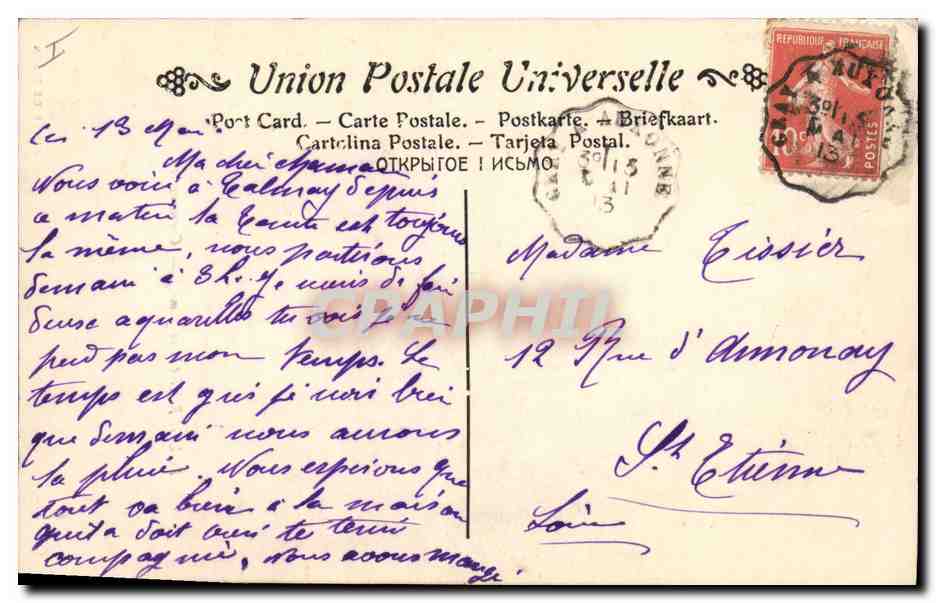 I
Union Postale Universelle
Post Card. — Carte Postale. - Postkarte. — Briefkaart.
Cartolina Postale. — Tarjeta Postal.
ОТКРЫТОЕ ПИСЬМО
REPUBLIQUE FRANÇAISE
10c POSTES
GRAY A AUXONNE
13
Ce 13 Mai
Ma chère maman
Nous voici à Talmay depuis
ce matin la Tante est toujours
la même, nous partirons
demain à 3h. Je viens de faire
deux aquarelles tu vois je ne
perd pas mon temps. Le
temps est gris je vois bien
que demain nous aurons
la pluie. Nous espérons que
tout va bien à la maison
doit te tenir
compagnie, Nous avons mangé
Madame Tissier
12 Rue d'Annonay
St Etienne
Loire
CPAPHIL